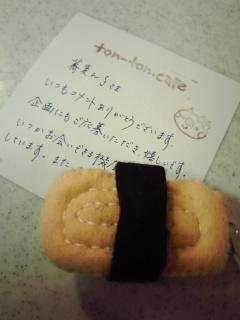 ton-ton.cafe
蕎麦んぢさま
いつもコメントありがとうございます。
企画にもご応募いただき嬉しいです。
いつかお会いできる
しています。また